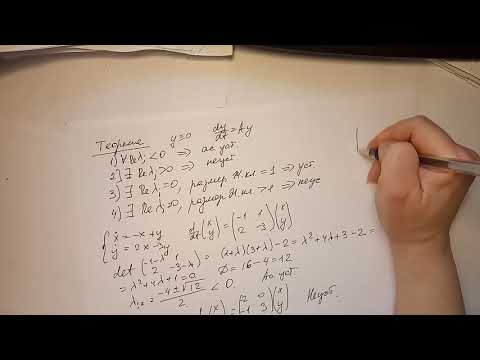 Теорема y≡0 dy/dt = Ay
1) ∀ Re λᵢ < 0 ⇒ ас. уст.
2) ∃ Re λᵢ > 0 ⇒ неуст
3) ∃ Re λᵢ = 0, размер ж.кл = 1 ⇒ уст
4) ∃ Re λᵢ = 0, размер ж.кл > 1 ⇒ неус
{ ẋ = -x+y d/dt (x y) = (-1 1 2 -3)(x y)
ẏ = 2x-3y
det (-1-λ 1 2 -3-λ) = (1+λ)(3+λ)-2 = λ²+4λ+3-2 =
= λ²+4λ+1=0 D = 16-4=12
λ₁,₂ = (-4±√12)/2 < 0. Ас. уст.
(2 0 -1 3)(x y) Неуст.